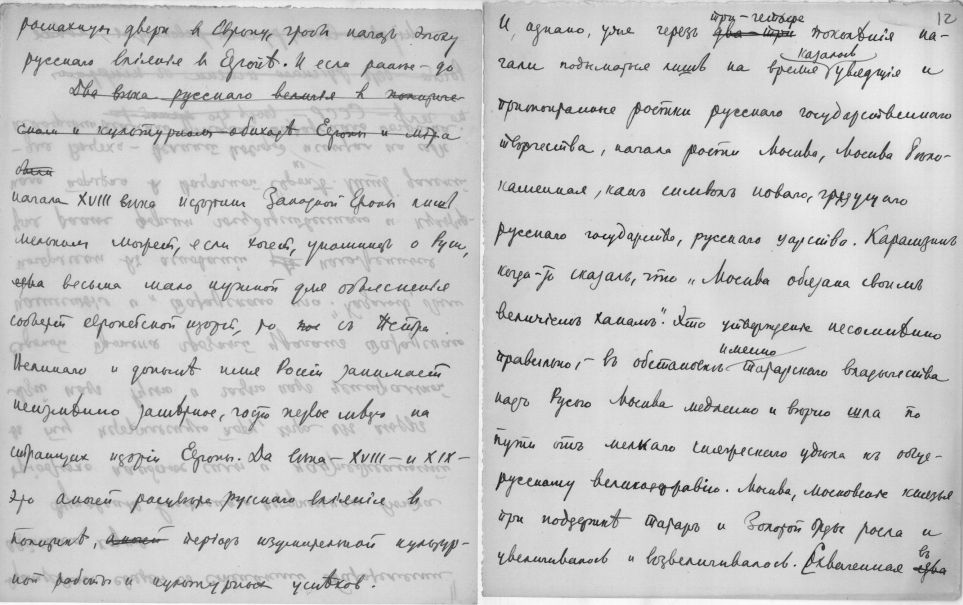 распахнул двери в Европу, чтобы начать эпоху
русского влiянiя в Европѣ. И если раньше - до
Два вѣка русскаго величiя в политиче-
ском и культурном обиходѣ Европы и мiра
были
начала XVIII вѣка историк Западной Европы лишь
мельком может, если хочет, упоминать о Руси,
едва весьма мало нужной для объясненiя
событiй европейской исторiи, то с Петра
Великаго и донынѣ имя Россiи занимает
неизмѣнно почетное, часто первое мѣсто на
страницах исторiи Европы. Два вѣка - XVIII - и XIX -
это апогей расцвѣта русскаго влiянiя в
политикѣ, апогей перiодъ изумительной культур-
ной работы и культурных успѣхов.
12
И, однако, уже черезъ два - три три-четыре поколѣнiя на-
чали подыматься лишь на время казалось увядшiе и
притоптанные ростки русскаго государственнаго
творчества, начала рости Москва, Москва бѣло-
каменная, какъ символъ новаго, грядущаго
русскаго государства, русскаго царства. Карамзинъ
когда-то сказалъ, что „Москва обязана своимъ
величiемъ ханамъ". Это утвержденiе несомнѣнно
правильно, - въ обстановкѣ именно татарскаго владычества
надъ Русью Москва медленно и вѣрно шла по
пути отъ мелкаго княжескаго удѣла къ обще-
русскому великодержавiю. Москва, московскiе князья
при поддержкѣ татаръ и Золотой Орды росла и
увеличивалось и возвеличивалось. Охваченная едва въ